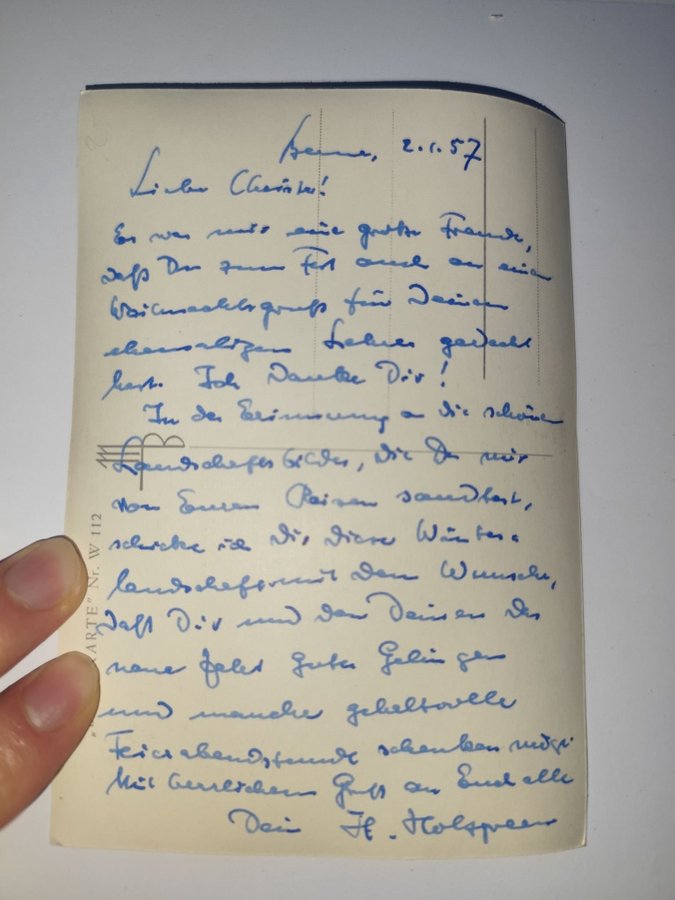 2.1.57
Liebe Christa!
Es war mir eine große Freude,
daß Du zum Fest auch an einen
Weihnachtsgruß für Deinen
ehemaligen Lehrer gedacht
hast. Ich danke Dir!
In der Erinnerung an die schönen
Landschaftsbilder, die Du mir
von Euren Reisen sandtest,
schicke ich Dir diese Winter-
landschaft mit dem Wunsche,
daß Dir und den Deinen das
neue Jahr gutes Gelingen
und manche gehaltvolle
Feierabendstunde schenken möge.
Mit herzlichem Gruß an Euch alle
Dein H.
KARTE" Nr. W 112